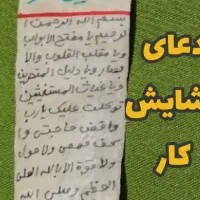 بسم الله الرحمن ا
لرحیم یا مفتح الابواب
ویا مقلب القلوب والا
بصار ویا دلیل المتحیرین
ویا غیاث المستغیثین
توکلت علیک یارب
واقض حاجتی وا
کف مهمی ولا حول
ولا قوة الا بالله العلی
العظیم وصلی الله
دعای
شایش
کار